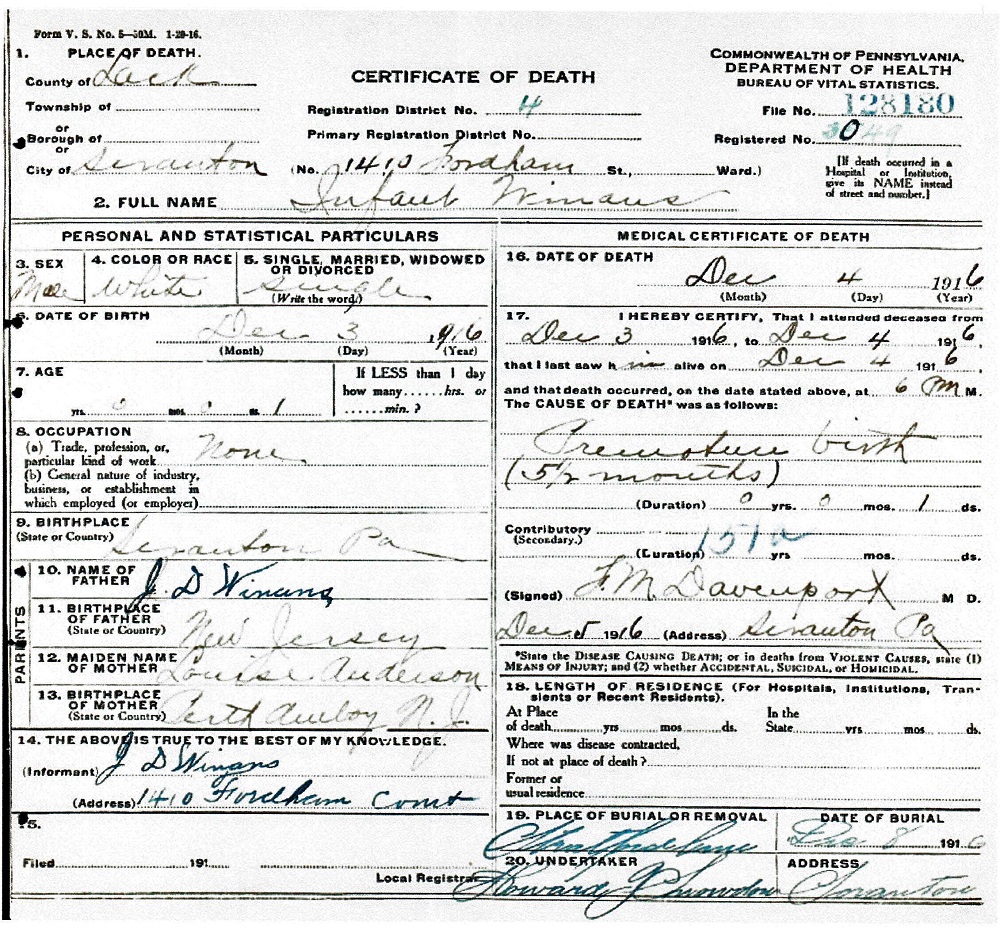 Form V. S. No. 5—50M. 1-29-16.
1. PLACE OF DEATH.
County of Lack
Township of
or
Borough of
or
City of Scranton
CERTIFICATE OF DEATH
Registration District No. 4
Primary Registration District No.
(No. 1410 Fordham St., Ward.)
COMMONWEALTH OF PENNSYLVANIA.
DEPARTMENT OF HEALTH
BUREAU OF VITAL STATISTICS.
File No. 128180
Registered No.
[If death occurred in a
Hospital or Institution,
give its NAME instead
of street and number.]
2. FULL NAME Infant Winans
PERSONAL AND STATISTICAL PARTICULARS
3. SEX
Male
4. COLOR OR RACE
White
5. SINGLE, MARRIED, WIDOWED
OR DIVORCED
Single
(Write the word)
6. DATE OF BIRTH
Dec 3 1916
(Month) (Day) (Year)
7. AGE
yrs. 0 mos. 0 ds. 1
If LESS than 1 day
how many......hrs. or
......min. ?
8. OCCUPATION
(a) Trade, profession, or,
particular kind of work None
(b) General nature of industry,
business, or establishment in
which employed (or employer)
9. BIRTHPLACE
(State or Country)
Scranton Pa
PARENTS
10. NAME OF
FATHER J. D Winans
11. BIRTHPLACE
OF FATHER
(State or Country) New Jersey
12. MAIDEN NAME
OF MOTHER Louise Anderson
13. BIRTHPLACE
OF MOTHER
(State or Country) Perth Amboy N. J.
14. THE ABOVE IS TRUE TO THE BEST OF MY KNOWLEDGE.
(Informant) J D Winans
(Address) 1410 Fordham Court
15.
Filed 191
Local Registrar
MEDICAL CERTIFICATE OF DEATH
16. DATE OF DEATH
Dec 4 1916
(Month) (Day) (Year)
17. I HEREBY CERTIFY, That I attended deceased from
Dec 3 1916, to Dec 4 1916,
that I last saw him alive on Dec 4 1916,
and that death occurred, on the date stated above, at 6 P M.
The CAUSE OF DEATH* was as follows:
Premature birth
(5½ months)
(Duration) 0 yrs. 0 mos. 1 ds.
Contributory
(Secondary.)
151a
(Duration) yrs mos. ds.
(Signed) F. M. Davenport M D.
Dec 5 1916 (Address) Scranton Pa
*State the DISEASE CAUSING DEATH; or in deaths from VIOLENT CAUSES, state (1)
MEANS OF INJURY; and (2) whether ACCIDENTAL, SUICIDAL, or HOMICIDAL.
18. LENGTH OF RESIDENCE (For Hospitals, Institutions, Tran-
sients or Recent Residents).
At Place
of death yrs mos ds.
In the
State yrs mos ds.
Where was disease contracted,
If not at place of death ?
Former or
usual residence
19. PLACE OF BURIAL OR REMOVAL
DATE OF BURIAL
Dec 8 1916
20. UNDERTAKER
Howard Snowdon
ADDRESS
Scranton